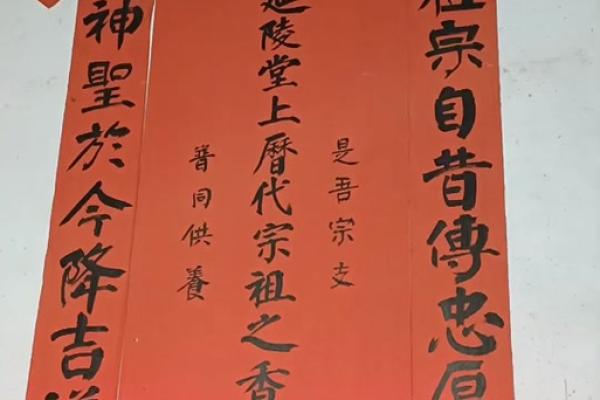 祖宗自昔傳忠厚
是吾宗支
延陵堂上曆代宗祖之香
普同供養
神聖於今降吉